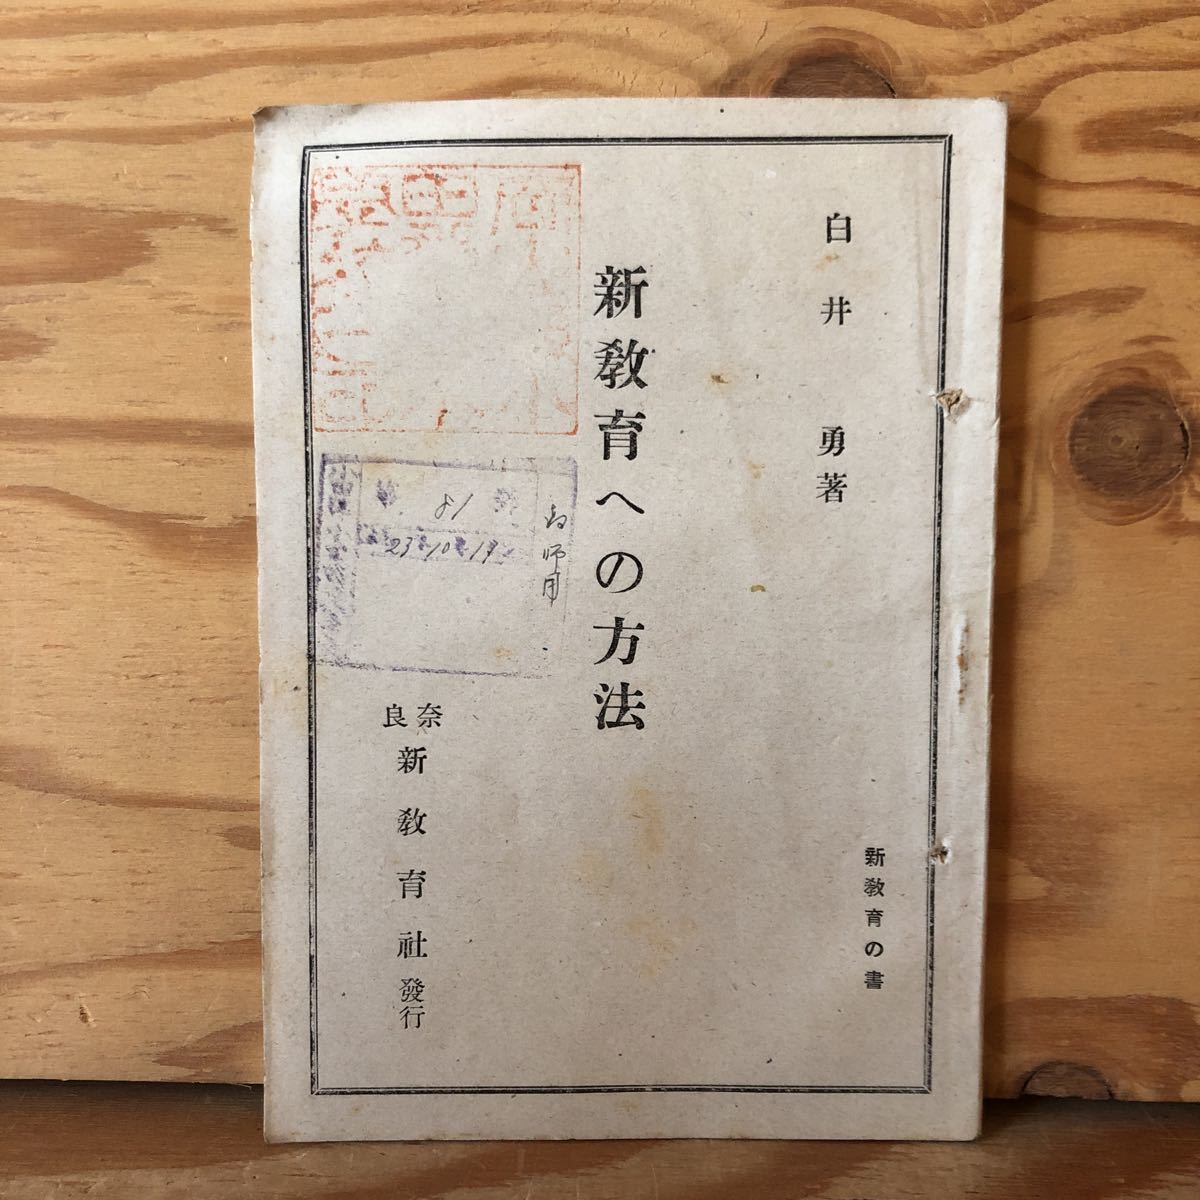 新教育の書
白井勇著
新教育への方法
奈良
新教育社發行
81
23 10 19